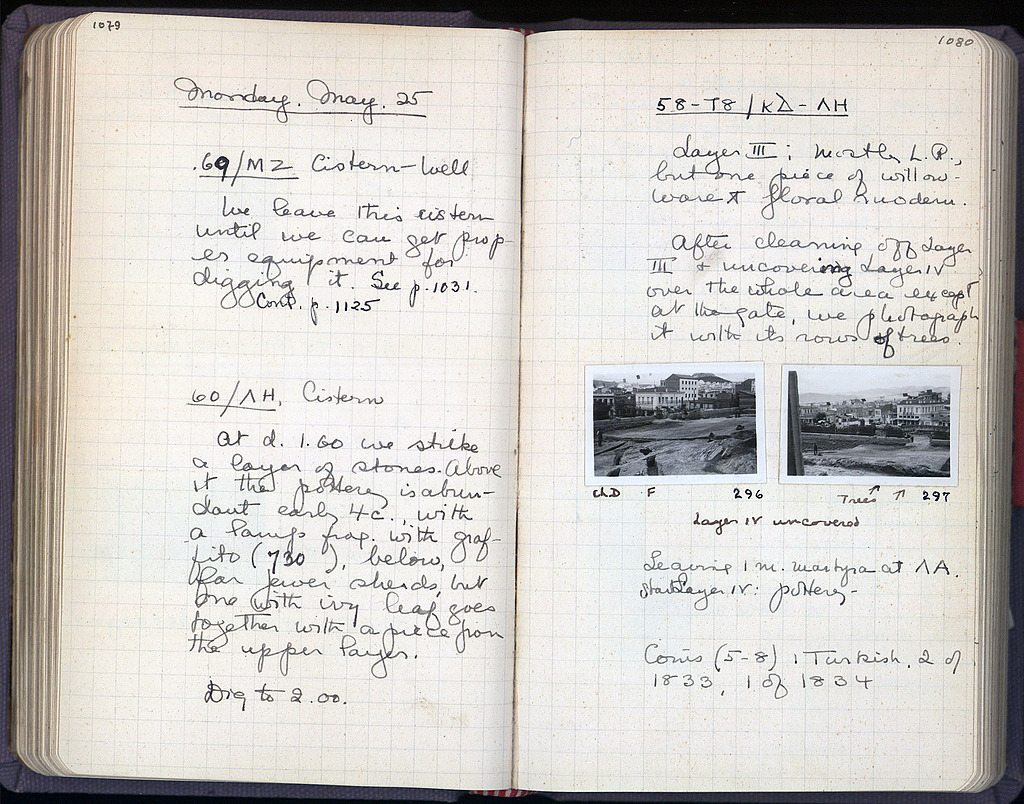 1079
Monday. May. 25
69/MZ Cistern-Well
We leave this cistern
until we can get prop-
er equipment for
digging it. See p. 1031.
Cont. p. 1125
60/ΛH, Cistern
At d. 1.60 we strike
a layer of stones. Above
it the pottery is abun-
dant early 4c., with
a lamp frag. with graf-
fito (730), below,
far fewer sherds, but
one with ivy leaf goes
together with a piece from
the upper layer.
Dig to 2.00.
1080
58-78/KΔ-ΛH
Layer III: mostly L.R.,
but one piece of willow-
ware & floral modern.
After cleaning off Layer
III & uncovering Layer IV
over the whole area except
at the gate, we photograph
it with its rows of trees.
F 296
Trees 297
Layer IV uncovered
Leaving 1 m. martyra at ΛA.
start Layer IV: pottery-
Coins (5-8) 1 Turkish, 2 of
1833, 1 of 1834